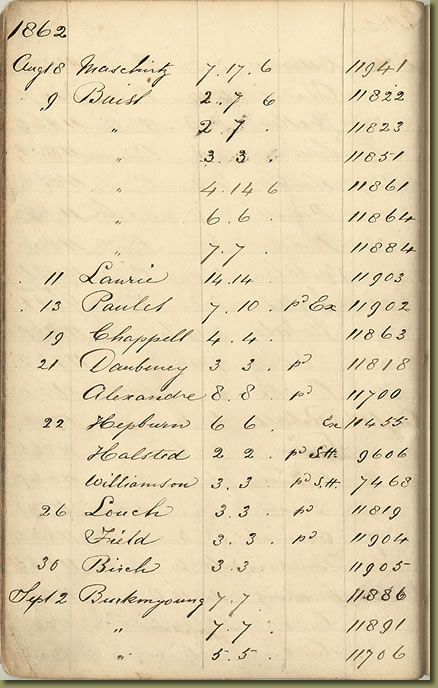 1862
Augt 8 Maschirtz 7.17.6 11941
9 Buist 2.7 6 11822
" 2.7. 11823
" 3.3. 11851
" 4.14 6 11861
" 6.6. 11864
" 7.7. 11884
11 Laurie 14.14 11903
13 Paulet 7.10. pd Ex 11902
19 Chappell 4.4. 11863
21 Daubeney 3.3. pd 11818
Alexandre 8.8. pd 11700
22 Hepburn 6 6. Ex 11455
Halsted 2 2. pd S.H. 9606
Williamson 3.3. pd S.H. 7468
26 Louch 3.3. pd 11819
Field 3.3. pd 11904
30 Birch 3.3 11905
Sept 2 Burkinyoung 7.7 11886
" 7.7. 11891
" 5.5. 11706